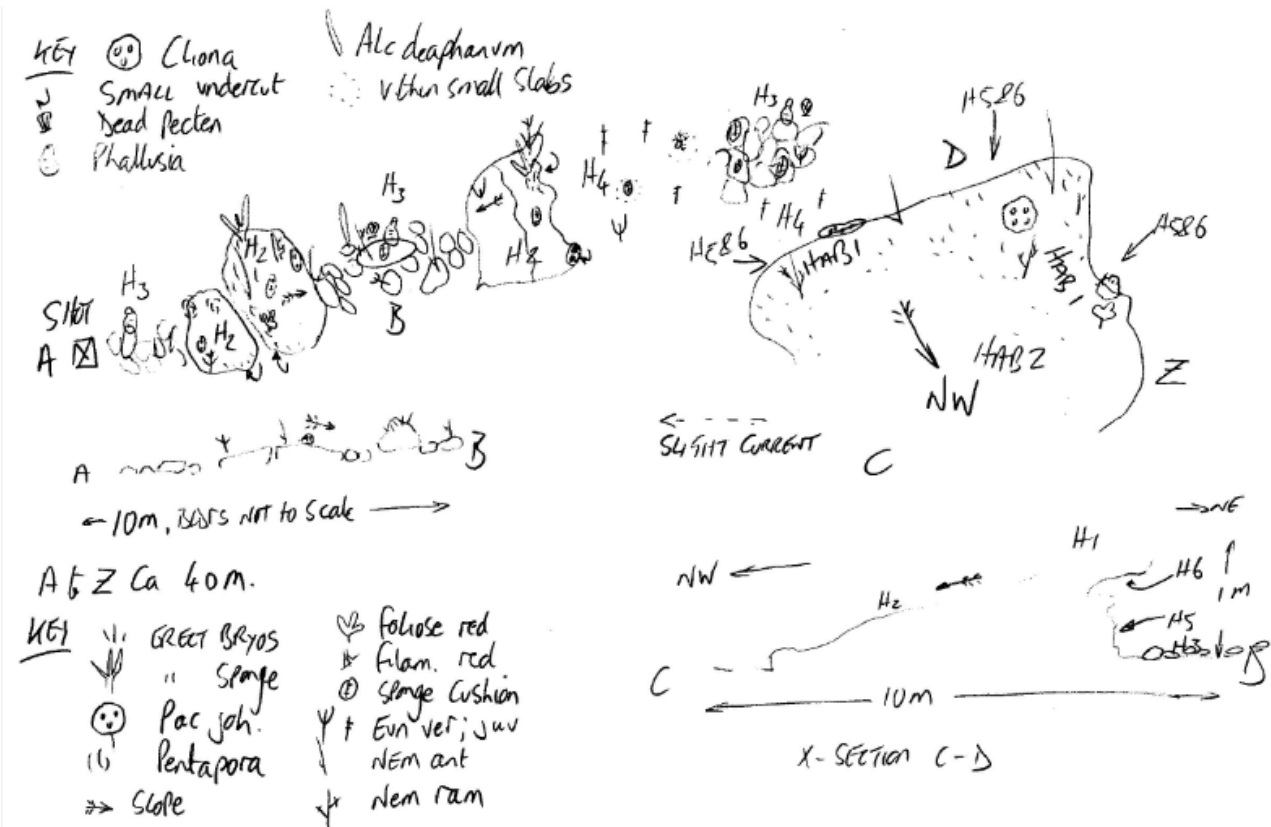 KEY
Cliona
Small undercut
Dead Pecten
Phallusia
Alc deaphanum
V thin small Slabs
H3
H2
H2
SHOT
A
H3
B
H4
H3
H4
D
H5&6
H5&6
HAB1
HAB1
HAB2
NW
Z
SLIGHT CURRENT
C
A
B
10m, NOT to Scale
A to Z Ca 40m.
KEY
ERECT BRYOS
" Sponge
Pac joh.
Pentapora
Slope
Foliose red
Filam. red
Sponge Cushion
Eun ver; juv
Nem ant
Nem ram
NW
H2
H1
NE
H6
1m
H5
H3
C
10m
X-SECTION C-D